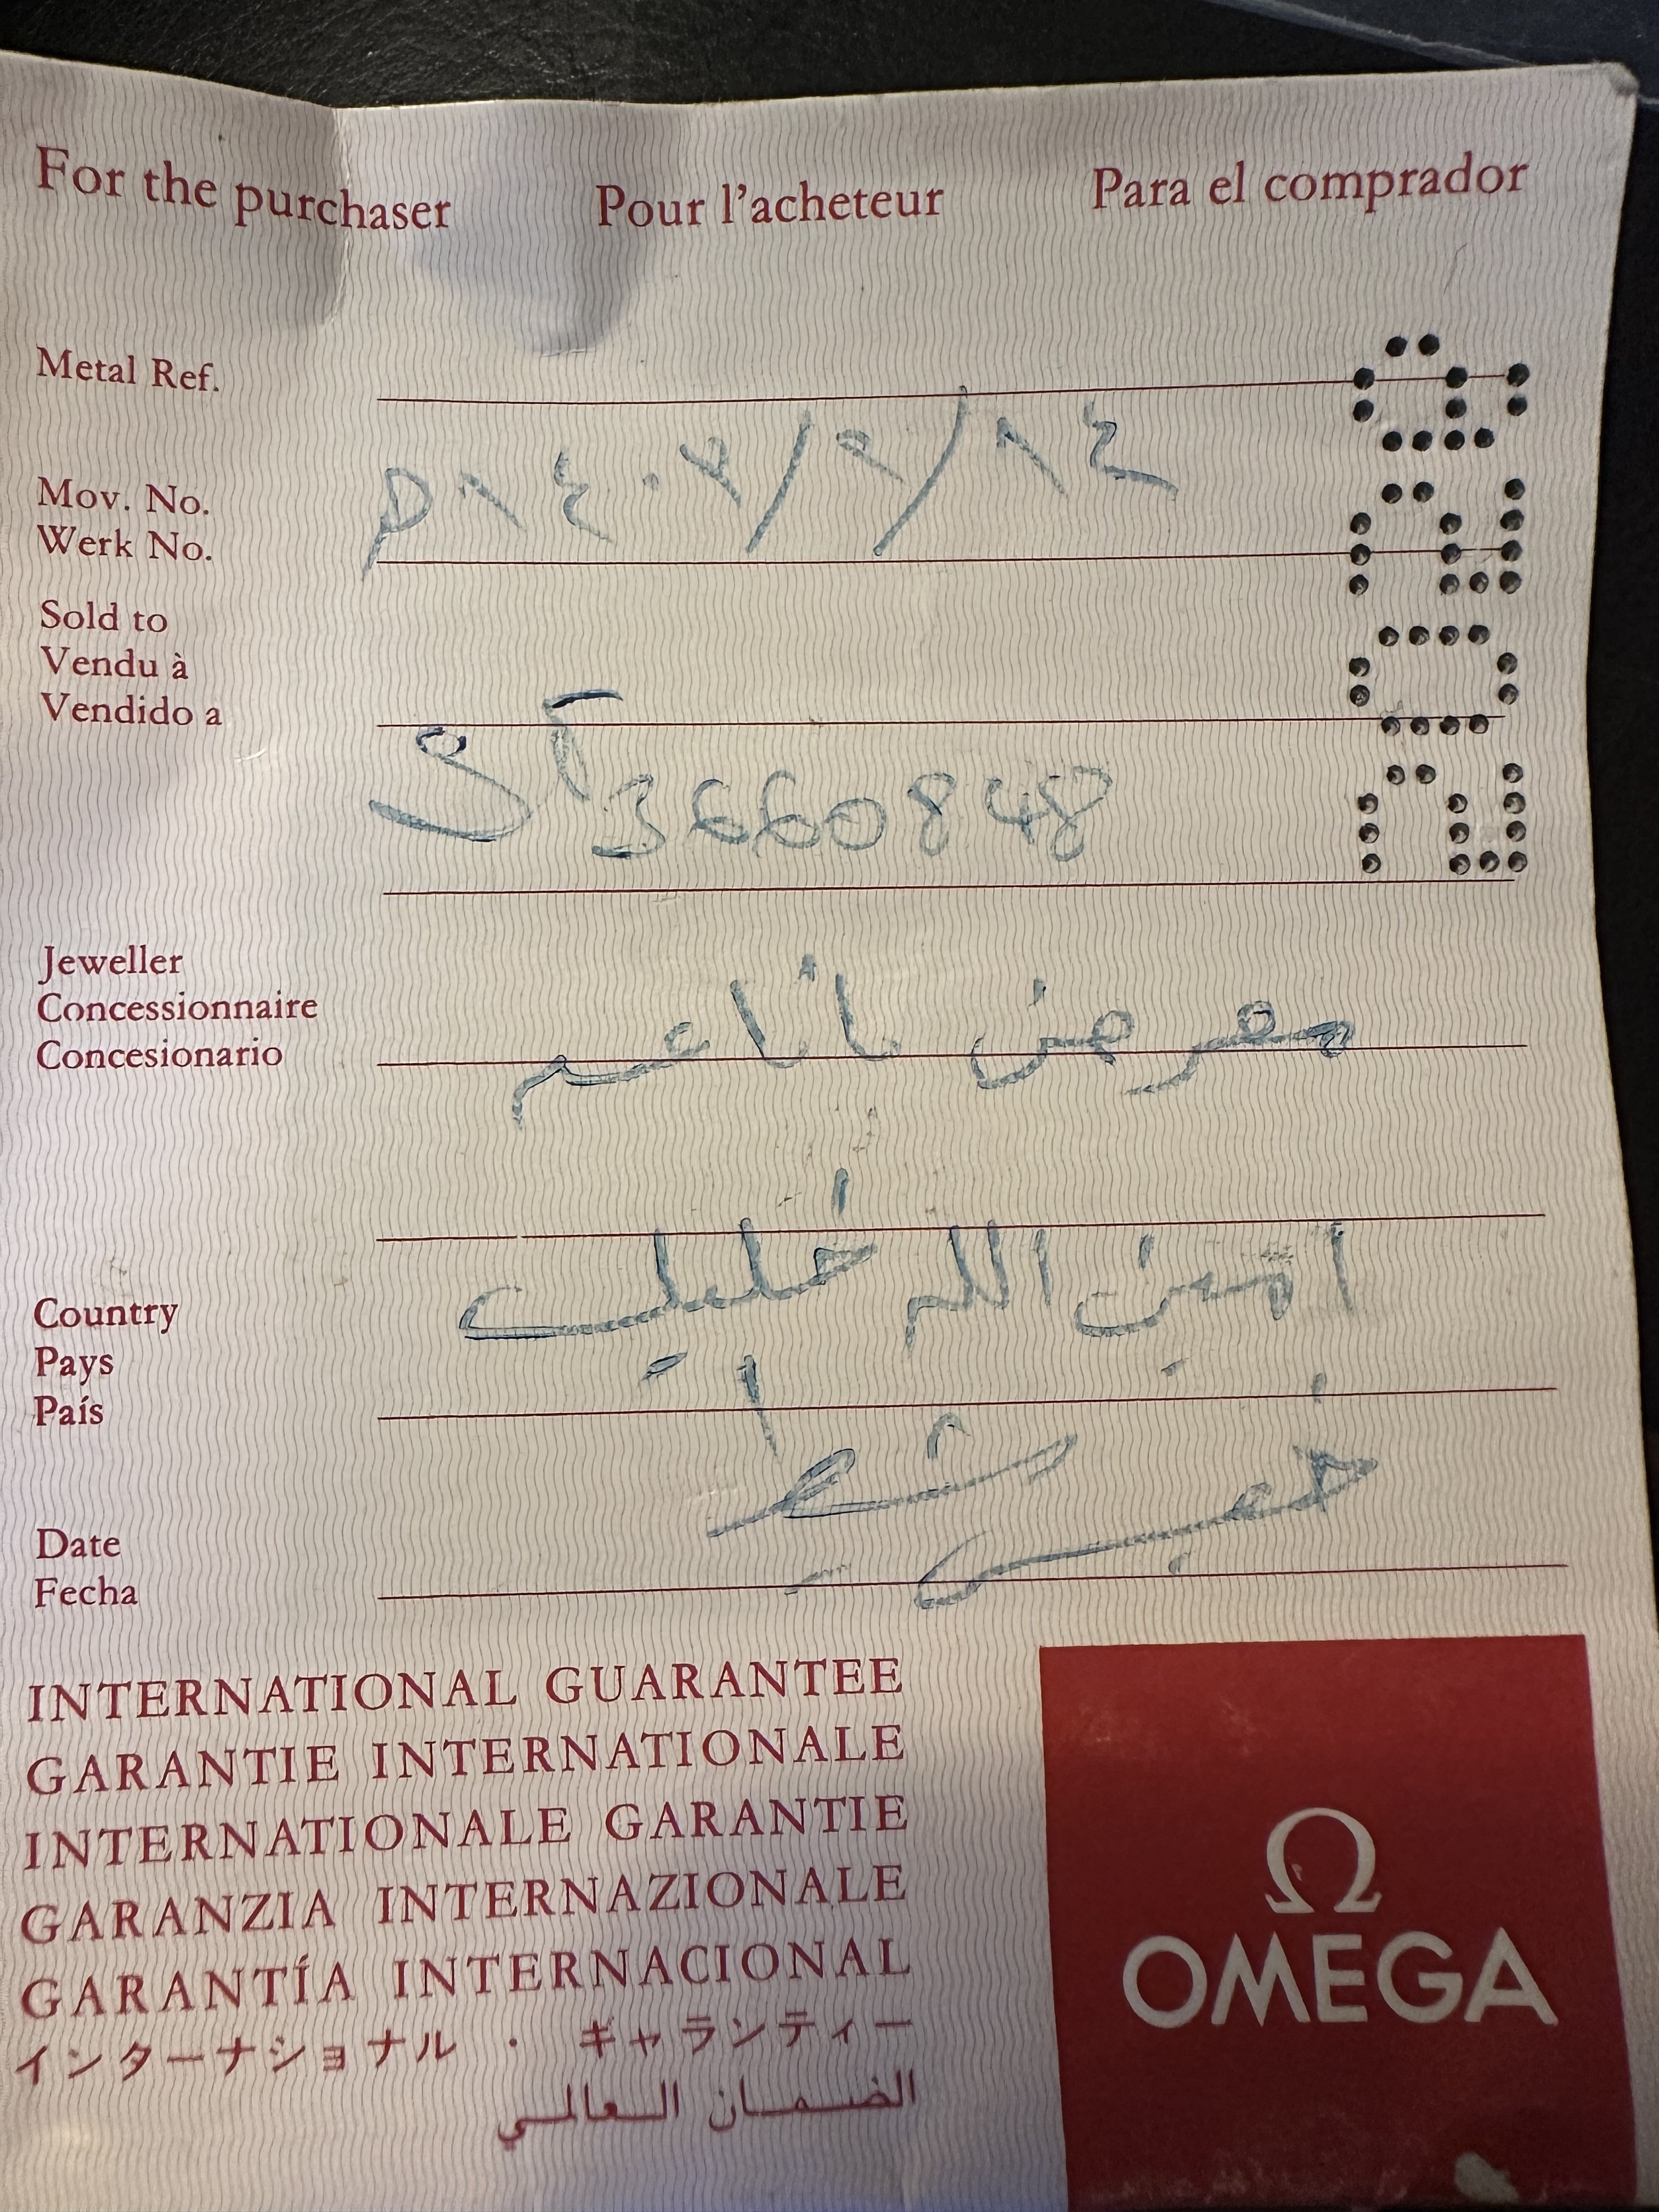 For the purchaser Pour l'acheteur Para el comprador
Metal Ref.
Mov. No.
Werk No.
Sold to
Vendu à
Vendido a
3660848
Jeweller
Concessionnaire
Concesionario
معرض
امين الله
Country
Pays
País
Date
Fecha
INTERNATIONAL GUARANTEE
GARANTIE INTERNATIONALE
INTERNATIONALE GARANTIE
GARANZIA INTERNAZIONALE
GARANTÍA INTERNACIONAL
インターナショナル・ギャランティー
الضمان العالمي
Ω
OMEGA